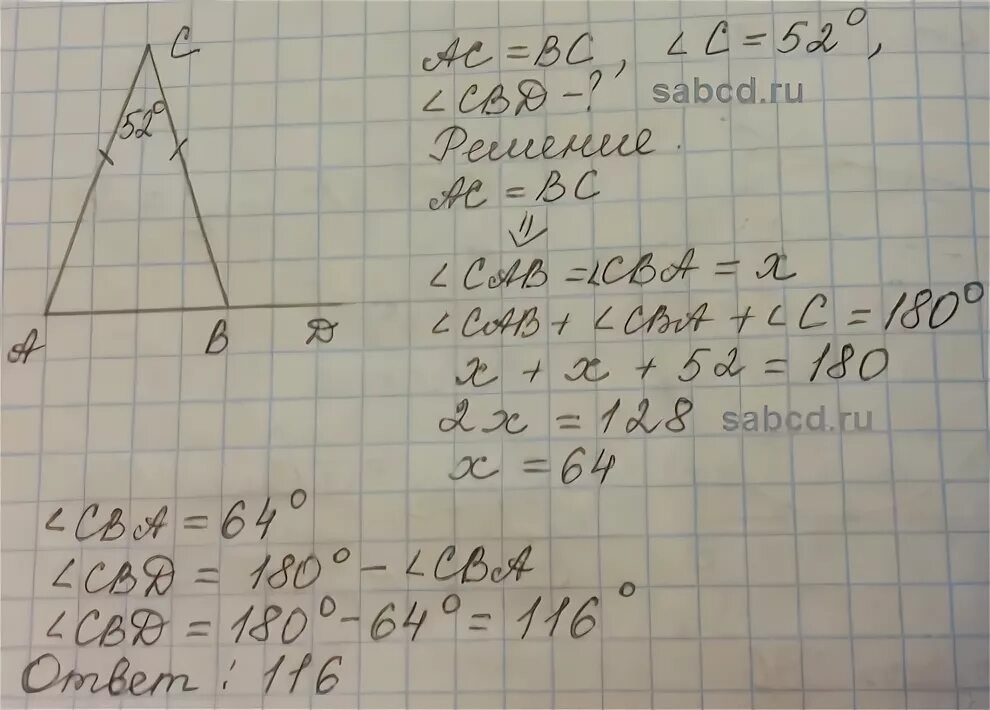 C
52°
A
B
D
AC = BC, ∠C = 52°,
∠CBD - ?
sabcd.ru
Решение.
AC = BC
⇓
∠CAB = ∠CBA = x
∠CAB + ∠CBA + ∠C = 180°
x + x + 52 = 180
2x = 128
sabcd.ru
x = 64
∠CBA = 64°
∠CBD = 180° - ∠CBA
∠CBD = 180° - 64° = 116°
Ответ: 116